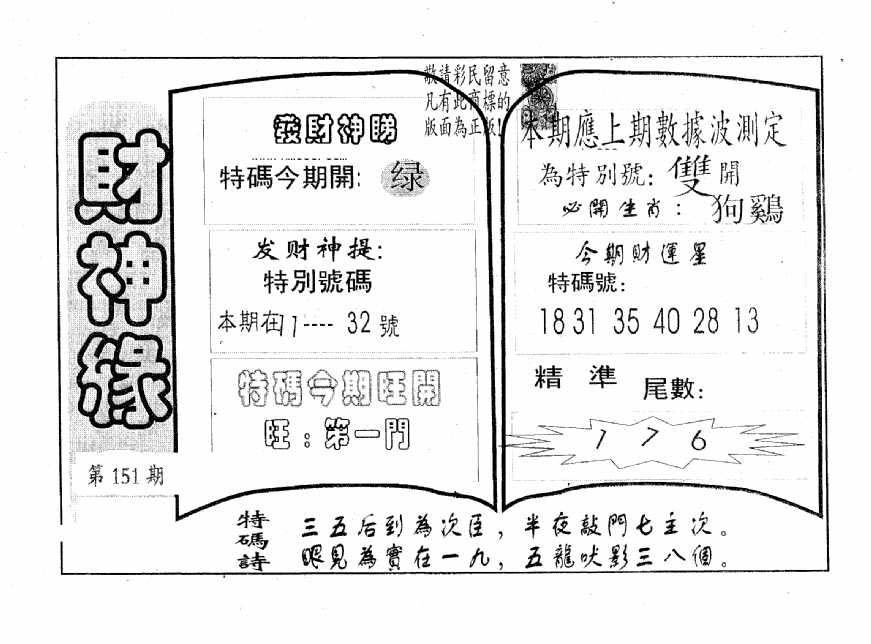 財神緣
第151期
敬請彩民留意
凡有此商標的
版面為正版!
發財神睇
特碼今期開: 绿
发财神提:
特別號碼
本期在1---- 32號
特碼今期旺開
旺:第一門
本期應上期數據波測定
為特別號: 雙開
必開生肖: 狗鷄
今期财運星
特碼號:
18 31 35 40 28 13
精準 尾數:
1 7 6
特碼詩
三五后到為次臣,半夜敲門七主次。
眼見為實在一九,五龍吠影三八個。